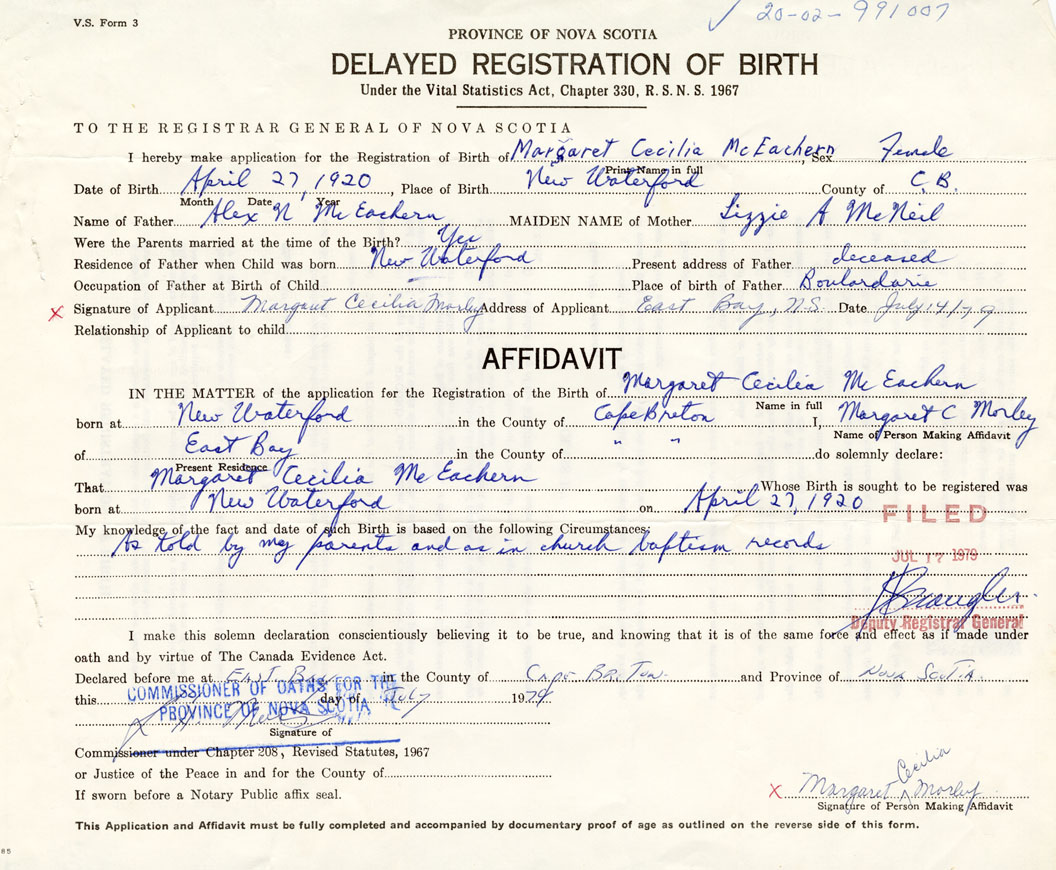 V.S. Form 3
20-02-991007
PROVINCE OF NOVA SCOTIA
DELAYED REGISTRATION OF BIRTH
Under the Vital Statistics Act, Chapter 330, R. S. N. S. 1967
TO THE REGISTRAR GENERAL OF NOVA SCOTIA
I hereby make application for the Registration of Birth of Margaret Cecilia McEachern, Sex Female
Print Name in full
Date of Birth April 27, 1920, Place of Birth New Waterford County of C.B.
Month Date Year
Name of Father Alex N McEachern MAIDEN NAME of Mother Lizzie A McNeil
Were the Parents married at the time of the Birth? Yes
Residence of Father when Child was born New Waterford Present address of Father deceased
Occupation of Father at Birth of Child Place of birth of Father Boulardarie
x Signature of Applicant Margaret Cecilia Morley Address of Applicant East Bay, N.S. Date July 14/79
Relationship of Applicant to child
AFFIDAVIT
IN THE MATTER of the application for the Registration of the Birth of Margaret Cecilia McEachern
Name in full
born at New Waterford in the County of Cape Breton I, Margaret C Morley
Name of Person Making Affidavit
of East Bay in the County of " " do solemnly declare:
Present Residence
That Margaret Cecilia McEachern Whose Birth is sought to be registered was
born at New Waterford on April 27, 1920
FILED
My knowledge of the fact and date of such Birth is based on the following Circumstances:
As told by my parents and as in church baptism records
JUL 17 1979
Deputy Registrar General
I make this solemn declaration conscientiously believing it to be true, and knowing that it is of the same force and effect as if made under
oath and by virtue of The Canada Evidence Act.
Declared before me at EAST BAY in the County of CAPE BRETON and Province of NOVA SCOTIA
this day of July 1979
COMMISSIONER OF OATHS FOR THE
PROVINCE OF NOVA SCOTIA
Signature of
Commissioner under Chapter 208, Revised Statutes, 1967
or Justice of the Peace in and for the County of
If sworn before a Notary Public affix seal.
x Margaret Cecilia Morley
Signature of Person Making Affidavit
This Application and Affidavit must be fully completed and accompanied by documentary proof of age as outlined on the reverse side of this form.
85